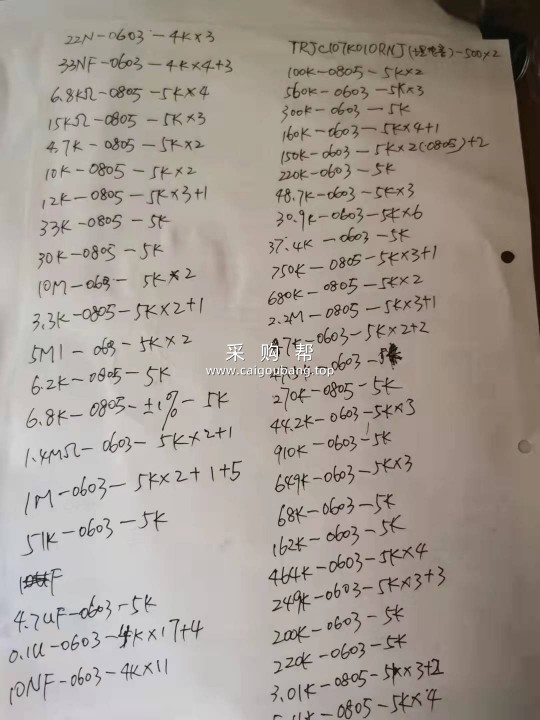 22N-0603-4K×3
33NF-0603-4K×4+3
6.8KΩ-0805-5K×4
15KΩ-0805-5K×3
4.7K-0805-5K×2
10K-0805-5K×2
12K-0805-5K×3+1
33K-0805-5K
30K-0805-5K
10M-063-5K×2
3.3K-0805-5K×2+1
5M1-063-5K×2
6.2K-0805-5K
6.8K-0805-±1%-5K
1.4MΩ-0603-5K×2+1
1M-0603-5K×2+1+5
51K-0603-5K
4.7UF-0603-5K
0.1U-0603-4K×17+4
10NF-0603-4K×11
TRJC107K010RNJ(钽电容)-500×2
100K-0805-5K×2
560K-0603-5K×3
300K-0603-5K
160K-0603-5K×4+1
150K-0603-5K×2(0805)+2
220K-0603-5K
48.7K-0603-5K×3
30.9K-0603-5K×6
37.4K-0603-5K
750K-0805-5K×3+1
680K-0805-5K×2
2.2M-0805-5K×3+1
47K-0603-5K×2+2
采购帮
www.caigoubang.top
0603-5K
270K-0805-5K
44.2K-0603-5K×3
910K-0603-5K
649K-0603-5K×3
68K-0603-5K
162K-0603-5K
464K-0603-5K×4
249K-0603-5K×3+3
200K-0603-5K
220K-0603-5K
3.01K-0805-5K×3+2
K-0805-5K×4